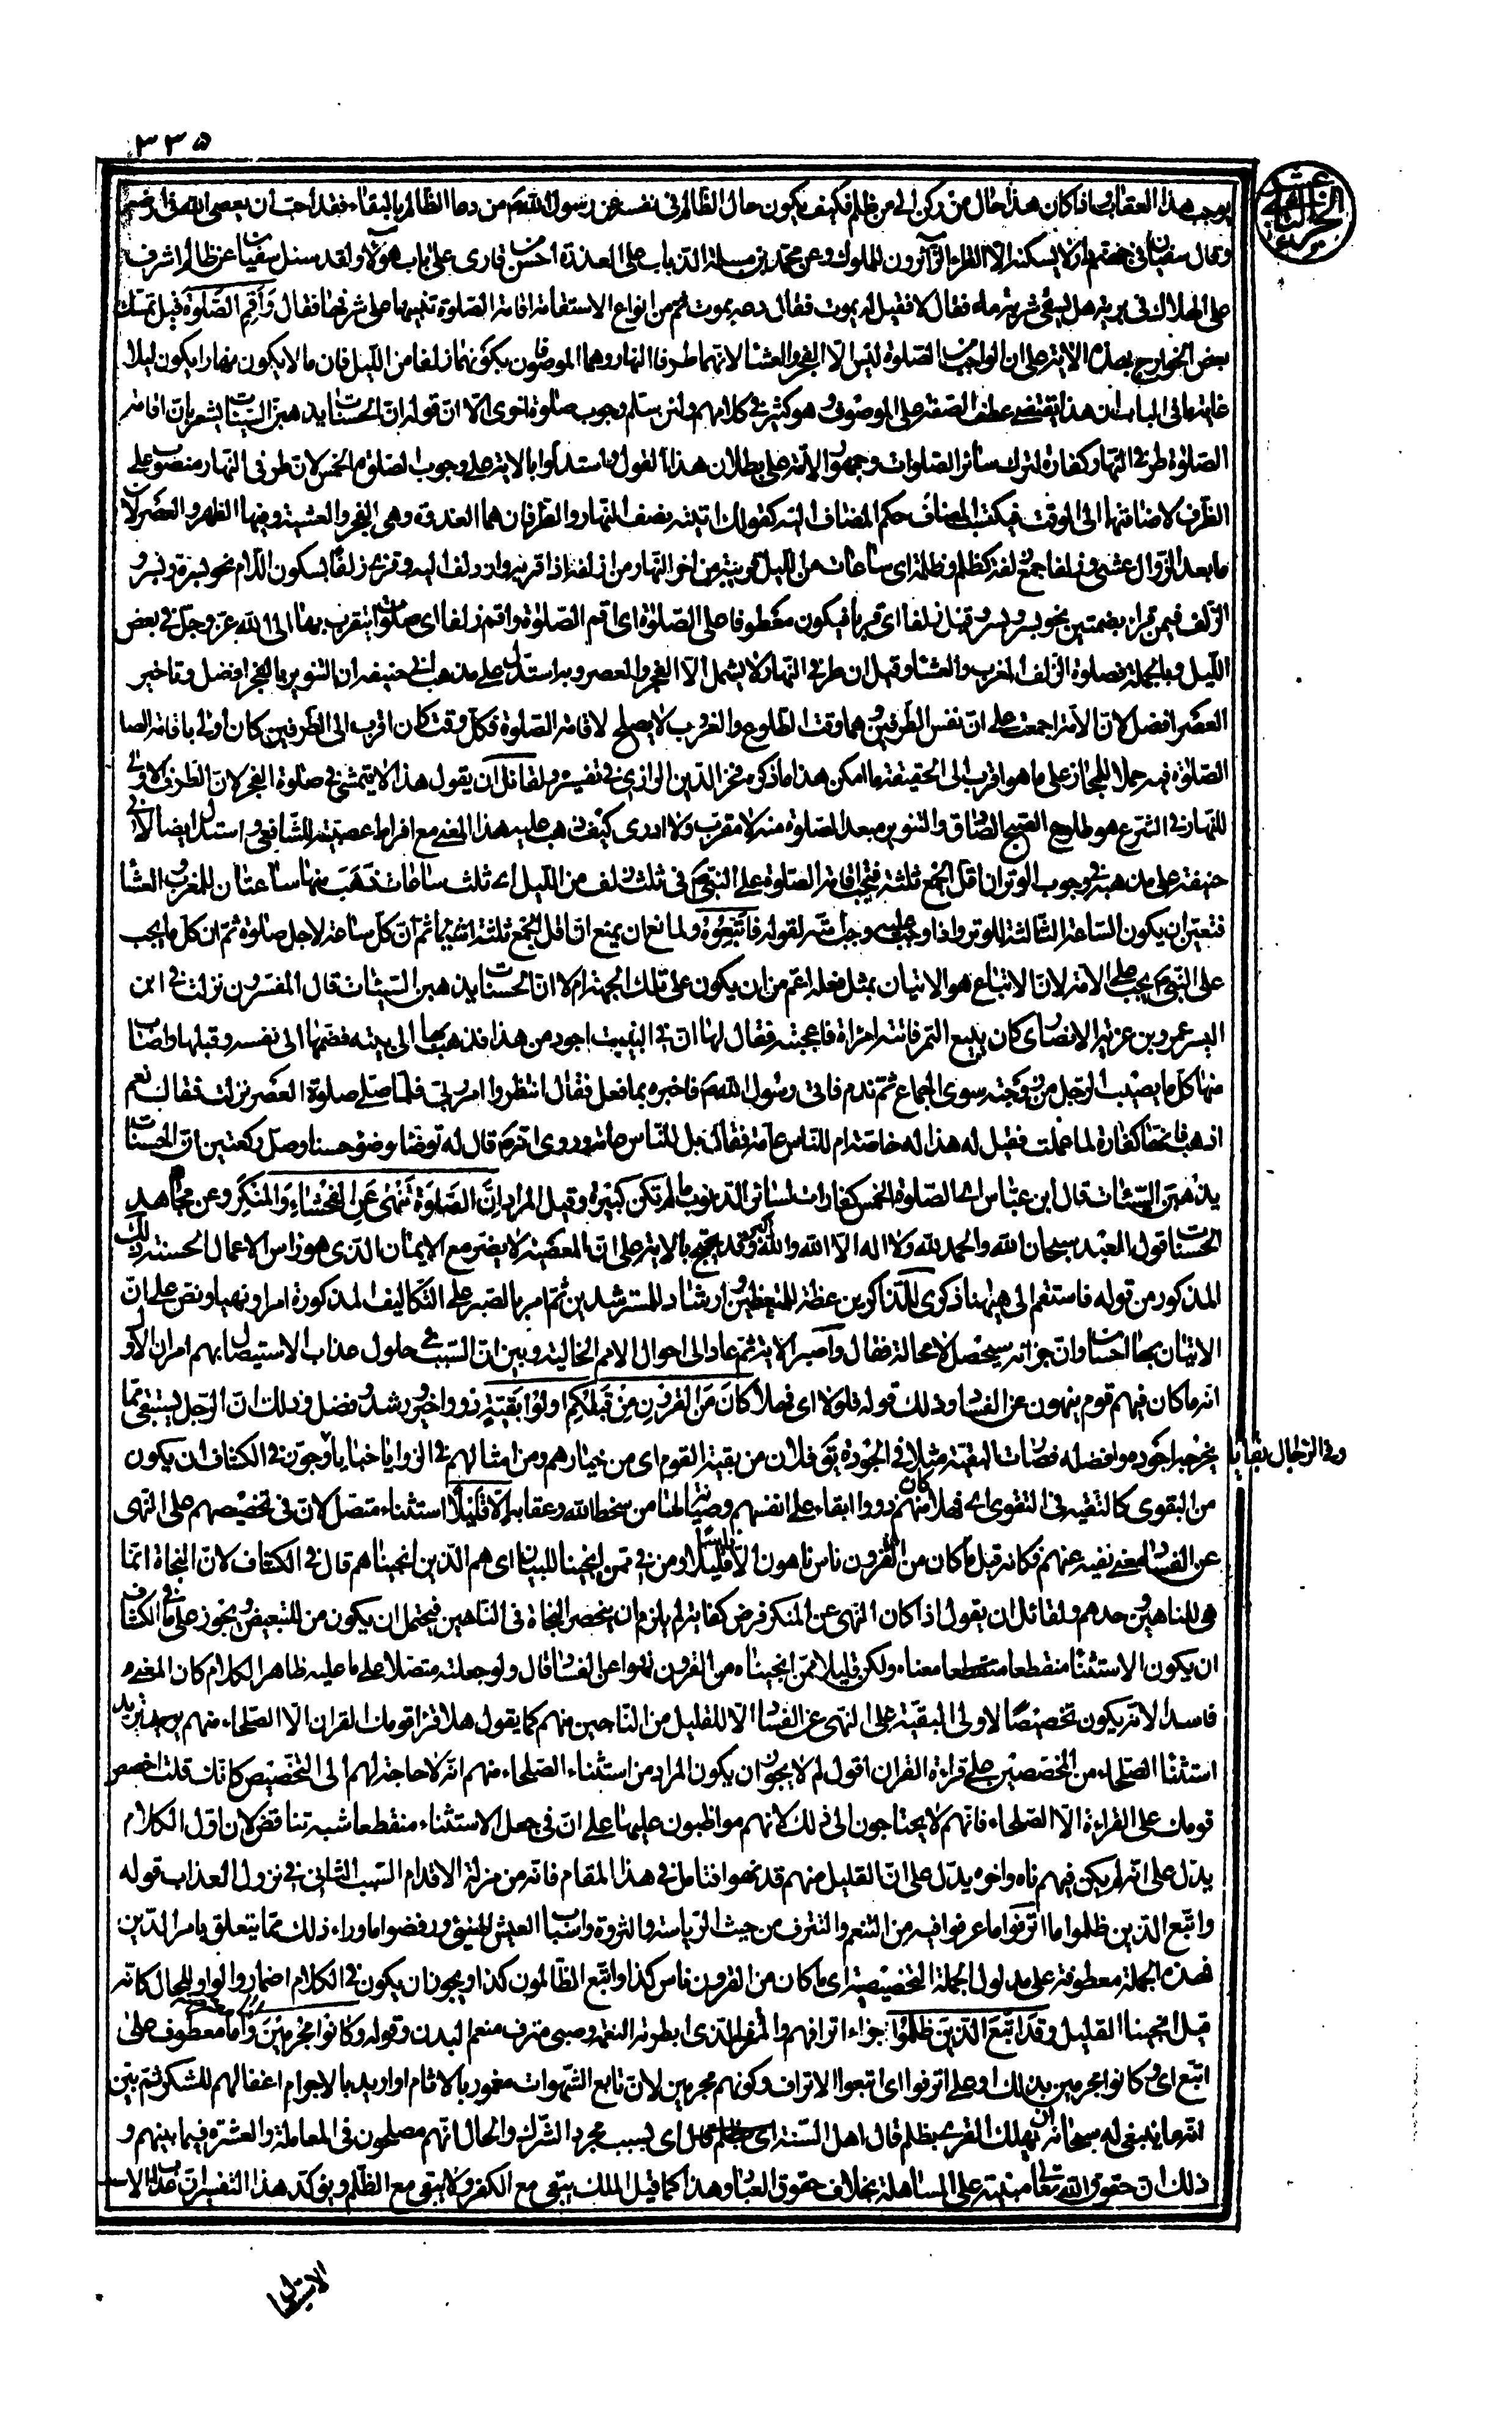 ٣٣٥
يوجب هذا العقاب فاذا كان هذا حال من ركن الى من ظلم فكيف يكون حال الظالم فى نفسه عن رسول الله ص من دعا لظالم بالبقاء فقد احب ان يعصى الله فى ارضه
وقال سفيان فى جهنم واد لا يسكنه الا القراء الزائرون للملوك وعن محمد بن مسلمة الذباب على العذرة احسن من قارئ على باب هؤلاء ولقد سئل سفيان عن ظالم اشرف
على الهلاك فى برية هل يسقى شربة ماء فقال لا فقيل له يموت فقال دعه يموت ثم من انواع الاستقامة اقامة الصلوة تنبيها على شرفها فقال وَاَقِمِ الصَّلٰوةَ قيل تمسك
بعض الخوارج بهذه الاية على ان الواجب من الصلوة ليس الا الفجر والعشاء لانهما طرفا النهار وهما الموصوفان بكونهما زلفا من الليل فان ما لا يكون نهارا يكون ليلا
غاية ما فى الباب ان هذا يقتضى عطف الصفة على الموصوف وهو كثير فى كلامهم ولئن سلم وجوب صلوة اخرى الا ان قوله ان الحسنات يذهبن السيئات يشعر بان اقامة
الصلوة طرفى النهار كفارة لترك سائر الصلوات وجمهور الامة على بطلان هذا القول واستدلوا بالاية على وجوب الصلوة الخمس لان طرفى النهار منصوب على
الظرف لاضافتهما الى الوقت فيكتسب المضاف حكم المضاف اليه كقولك اتيته نصف النهار والطرفان هما الغدوة وهى الفجر والعشية وفيها الظهر والعصر لان
ما بعد الزوال عشى وزلفا جمع زلفة كظلم وظلمة اى ساعات من الليل قريبة من اخر النهار من ازلفه اذا قربه وازدلف اليه وقرئ زلفا بسكون اللام نحو بسرة وبسر و
الزلف فيمن قراء بضمتين نحو بسر وبسر وقيل زلفا اى قربا فيكون معطوفا على الصلوة اى اقم الصلوة واقم زلفا اى صلوات يتقرب بها الى الله عز وجل فى بعض
الليل وبالجملة فصلوة الزلف المغرب والعشاء وقيل ان طرفى النهار لا يشمل الا الفجر والعصر وبه استدل على مذهب ابى حنيفة ان التنوير بالفجر افضل وتاخير
العصر افضل لان الامة اجمعت على ان نفس الطرفين وهما وقت الطلوع والغروب لا يصلح لاقامة الصلوة فكل وقت كان اقرب الى الطرفين كان اولى باقامة الصا
الصلوة فيه حملا للمجاز على ما هو اقرب الى الحقيقة ما امكن هذا ما ذكره فخر الدين الرازى فى تفسيره ولقائل ان يقول هذا لا يتمشى فى صلوة الفجر لان الطرف الاول
للنهار فى الشرع هو طلوع الصبح الصادق والتنوير مبعد الصلوة منه لا مقرب ولا ادرى كيف ذهب عليه هذا المعنى مع افراط عصبيته للشافعى واستدل ايضا لابى
حنيفة على مذهبه فى وجوب الوتر ان اقل الجمع ثلثة فتجب اقامة الصلوة على النبى ص فى ثلث زلف من الليل اى ثلث ساعات ذهب منها ساعتان للمغرب والعشا
فتعين ان يكون الساعة الثالثة للوتر واذا وجب عليه وجب على امته لقوله فَاتَّبِعُوهُ ولمانع ان يمنع ان اقل الجمع ثلثة اشياء ثم ان كل ساعة لاجل صلوة ثم ان كل ما يجب
على النبى ص يجب على الامة لان الاتباع هو الاتيان بمثل فعله اعم من ان يكون على تلك الجهة ام لا ان الحسنات يذهبن السيئات قال المفسرون نزلت فى ابن
اليسر عمرو بن غزية الانصارى كان يبيع التمر فاتته امرأة فاعجبته فقال لها ان فى البيت اجود من هذا فذهب بها الى بيته فضمها الى نفسه وقبلها واصاب
منها كل ما يصيب الرجل من زوجته سوى الجماع ثم ندم فاتى رسول الله ص فاخبره بما فعل فقال انتظروا امر ربى فلما صلى صلوة العصر نزلت فقال نعم
اذهب فانها كفارة لما عملت فقيل له هذا له خاصة ام للناس عامة فقال بل للناس عامة وروى انه ص قال له توضا وضوءا حسنا وصل ركعتين ان الحسنات
يذهبن السيئات قال ابن عباس اى الصلوة الخمس كفارات لسائر الذنوب ما لم تكن كبيرة وقيل المراد اِنَّ الصَّلٰوةَ تَنْهٰى عَنِ الْفَحْشَاءِ وَالْمُنْكَرِ وعن مجاهد
الحسنات قول العبد سبحان الله والحمد لله ولا اله الا الله والله اكبر وقد يحتج بالاية على ان المعصية لا يضر مع الايمان الذى هو راس الاعمال الحسنة ذلك
المذكور من قوله فاستقم الى هيهنا ذكرى للذاكرين عظة للمتعظين وارشاد للمسترشدين ثم امر بالصبر على التكاليف المذكورة امرا ونهيا ونص على ان
الاتيان بها احسان وان جزائه سيحصل لا محالة فقال واصبر الاية ثم عاد الى احوال الامم الخالية وبين ان السبب فى حلول عذاب الاستيصال بهم امران الاول
انه ما كان فيهم قوم ينهون عن الفساد وذلك قوله فلولا اى فهلا كَانَ مِنَ الْقُرُونِ مِنْ قَبْلِكُمْ اُولُوا بَقِيَّةٍ ذوو اخير ورشد وفضل وذلك ان الرجل يستبقى مما
يخرجه اجوده وافضله فصارت البقية مثلا فى الجودة يق فلان من بقية القوم اى من خيارهم ومن امثالهم فى الزوايا خبايا وجوز فى الكشاف ان يكون
وفى الرجال بقايا
من البقوى كالتقية فى التقوى اى فهلا كان منهم ذووا ابقاء على انفسهم وصيانة لها من سخط الله وعقابه اِلَّا قَلِيلًا استثناء متصل لان فى تخصيصهم على النهى
عن الفساد معنى نفيه عنهم فكانه قيل ما كان من القرون ناس ناهون الا ناسا قليلا ومن فى ممن انجينا للبيان اى هم الذين انجيناهم قال فى الكشاف لان النجاة انما
هى للناهين وحدهم ولقائل ان يقول اذا كان النهى عن المنكر فرض كفاية لم يلزم ان ينحصر النجاة فى الناهين فيحتمل ان يكون من للتبعيض ويجوز على ما فى الكشاف
ان يكون الاستثناء منقطعا معناه ولكن قليلا ممن انجيناه من القرون نهوا عن الفساد قال ولو جعلته متصلا على ما عليه ظاهر الكلام كان المعنى
فاسدا لانه يكون تخصيصا لاولى البقية على النهى عن الفساد الا للقليل من الناجين منهم كما يقول هلا قرا قومك القران الا الصلحاء منهم تريد
استثناء الصلحاء من المخصصين على قراءة القران اقول لم لا يجوز ان يكون المراد من استثناء الصلحاء منهم انه لا حاجة لهم الى التخصيص كانك قلت اخصص
قومك على القراءة الا الصلحاء فانهم لا يحتاجون الى ذلك لانهم مواظبون عليها على ان فى جعل الاستثناء منقطعا شبه تناقض لان اول الكلام
يدل على انه لم يكن فيهم ناه واخره يدل على ان القليل منهم قد نهوا فتامل فى هذا المقام فانه من مزلة الاقدام السبب الثانى فى نزول العذاب قوله
واتبع الذين ظلموا ما اترفوا ما عرفوا فيه من التنعم والتترف من حيث الرياسة والثروة واسباب العيش الهنيئ ورفضوا ما وراء ذلك مما يتعلق بامر الدين
فهذه الجملة معطوفة على مدلول الجملة التخصيصية اى ما كان من القرون ناس كذا واتبع الظالمون كذا ويجوز ان يكون فى الكلام اضمار والواو للحال كانه
قيل انجينا القليل وقد اتَّبَعَ الَّذِينَ ظَلَمُوا جزاء اترافهم والمترف الذى ابطرته النعمة وصبى مترف منعم البدن وقوله وَكَانُوا مُجْرِمِينَ اما معطوف على
اتبع اى وكانوا مجرمين بذلك او على اترفوا اى اتبعوا الاتراف وكونهم مجرمين لان تابع الشهوات مغمور بالاثام او اريد بالاجرام اغفالهم للشكر ثم بين
انه ما ينبغى له سبحانه ان يهلك القرى بظلم قال اهل السنة اى بسبب مجرد الشرك والحال انهم مصلحون فى المعاملة والعشرة فيما بينهم و
ذلك ان حقوق الله تعالى مبنية على المساهلة بخلاف حقوق العباد وهذا كما قيل الملك يبقى مع الكفر ولا يبقى مع الظلم ويؤكد هذا التفسير ان عذاب الاسـ